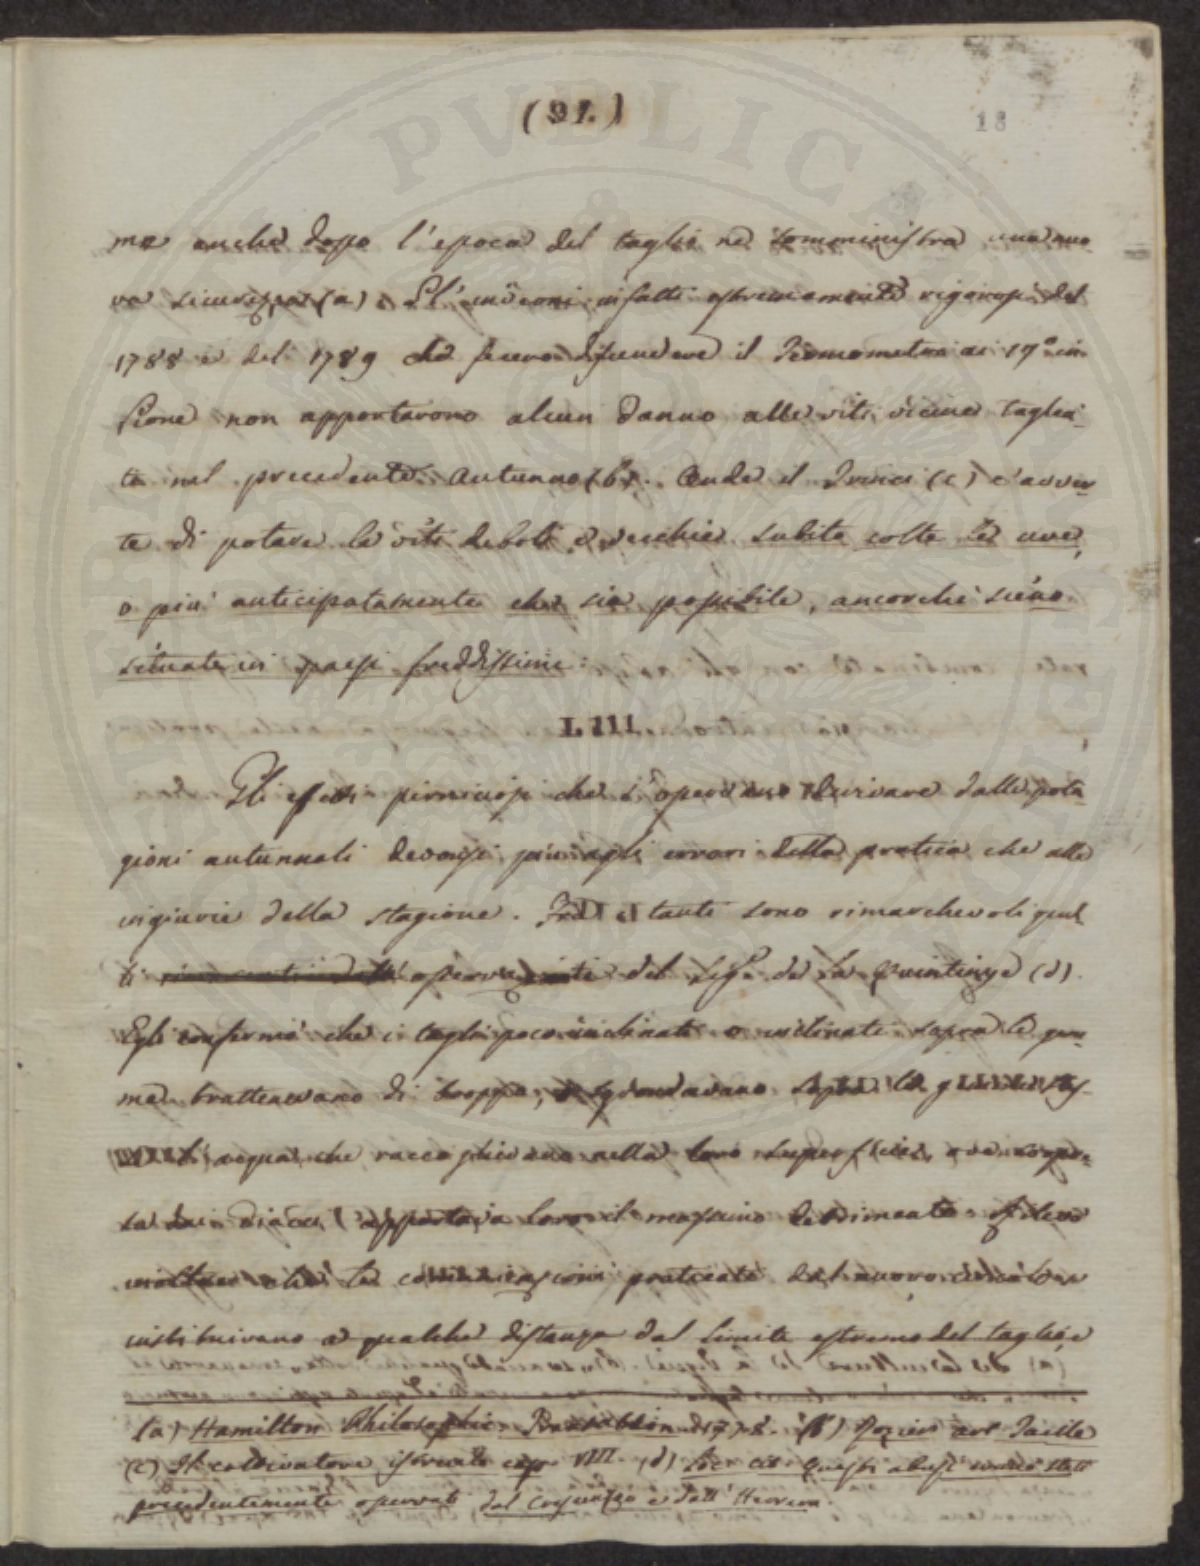 (91.)
18
ma anche dopo l'epoca del taglio ne somministra una nuo
va sicurezza (a). Gl'inverni infatti estremamente rigorosi del
1788 e del 1789 che fecero discendere il Termometro ai 17° in
Lione non apportarono alcun danno alle viti vicine taglia-
te nel precedente Autunno (b). Onde il Trinci (c) c'avver-
te di potare le viti deboli, e vecchie subito colte le uve,
o più anticipatamente che sia possibile, ancorché sieno
situate in paesi freddissimi.
LIII.
Gli effetti perniciosi che s'operano derivare dalle pota
gioni autunnali devonsi più agli errori della pratica che alle
ingiurie della stagione. tanti sono rimarchevoli quel
li del Sig.r de la Quintinye (d).
Egli confermò che i tagli poco inclinati o inclinati sopra le gem-
me trattenevano di troppo,
acqua che raccoglievano nella loro superficie,
apportava loro il massimo detrimento.
le praticate dal nuovo
instituivano a qualche distanza dal limite estremo del taglio, e
(a) Hamilton Philosophic. (b) Rozier art. Taille
(c) Il coltivatore istruito cap. VIII. (d) Loc. cit. Questi abusi erano stati
precedentemente osservati dal e dall'Herrera.